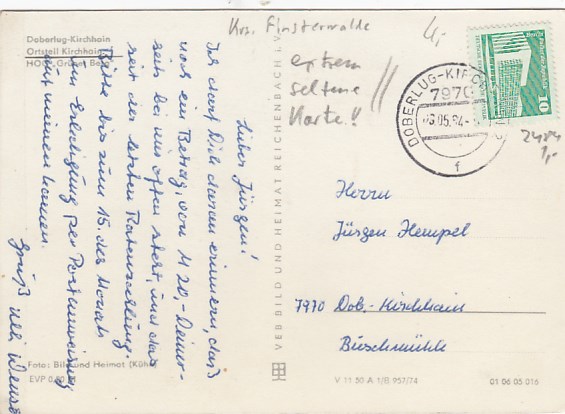 Doberlug-Kirchhain
Ortsteil Kirchhain
HOG „Grüner Berg"
Krs. Finsterwalde
4,-
extrem
seltene
Karte!!
DOBERLUG-KIRCH
7970
03.05.84
f
10
2484
1,-
Lieber Jürgen!
Ich darf Dich daran erinnern, daß
noch ein Betrag von M 20,- Deiner-
seits bei uns offen steht, und das
seit der letzten Ratenzahlung.
Bitte bis zum 15. des Monats
um Erledigung per Postanweisung
auf meinen Namen.
Gruß
Herrn
Jürgen Hempel
7970 Dob.-Kirchhain
Buschmühle
VEB BILD UND HEIMAT REICHENBACH I. V.
Foto: Bild und Heimat (Kühn)
EVP 0,20
V 11 50 A 1/B 957/74
01 06 05 016